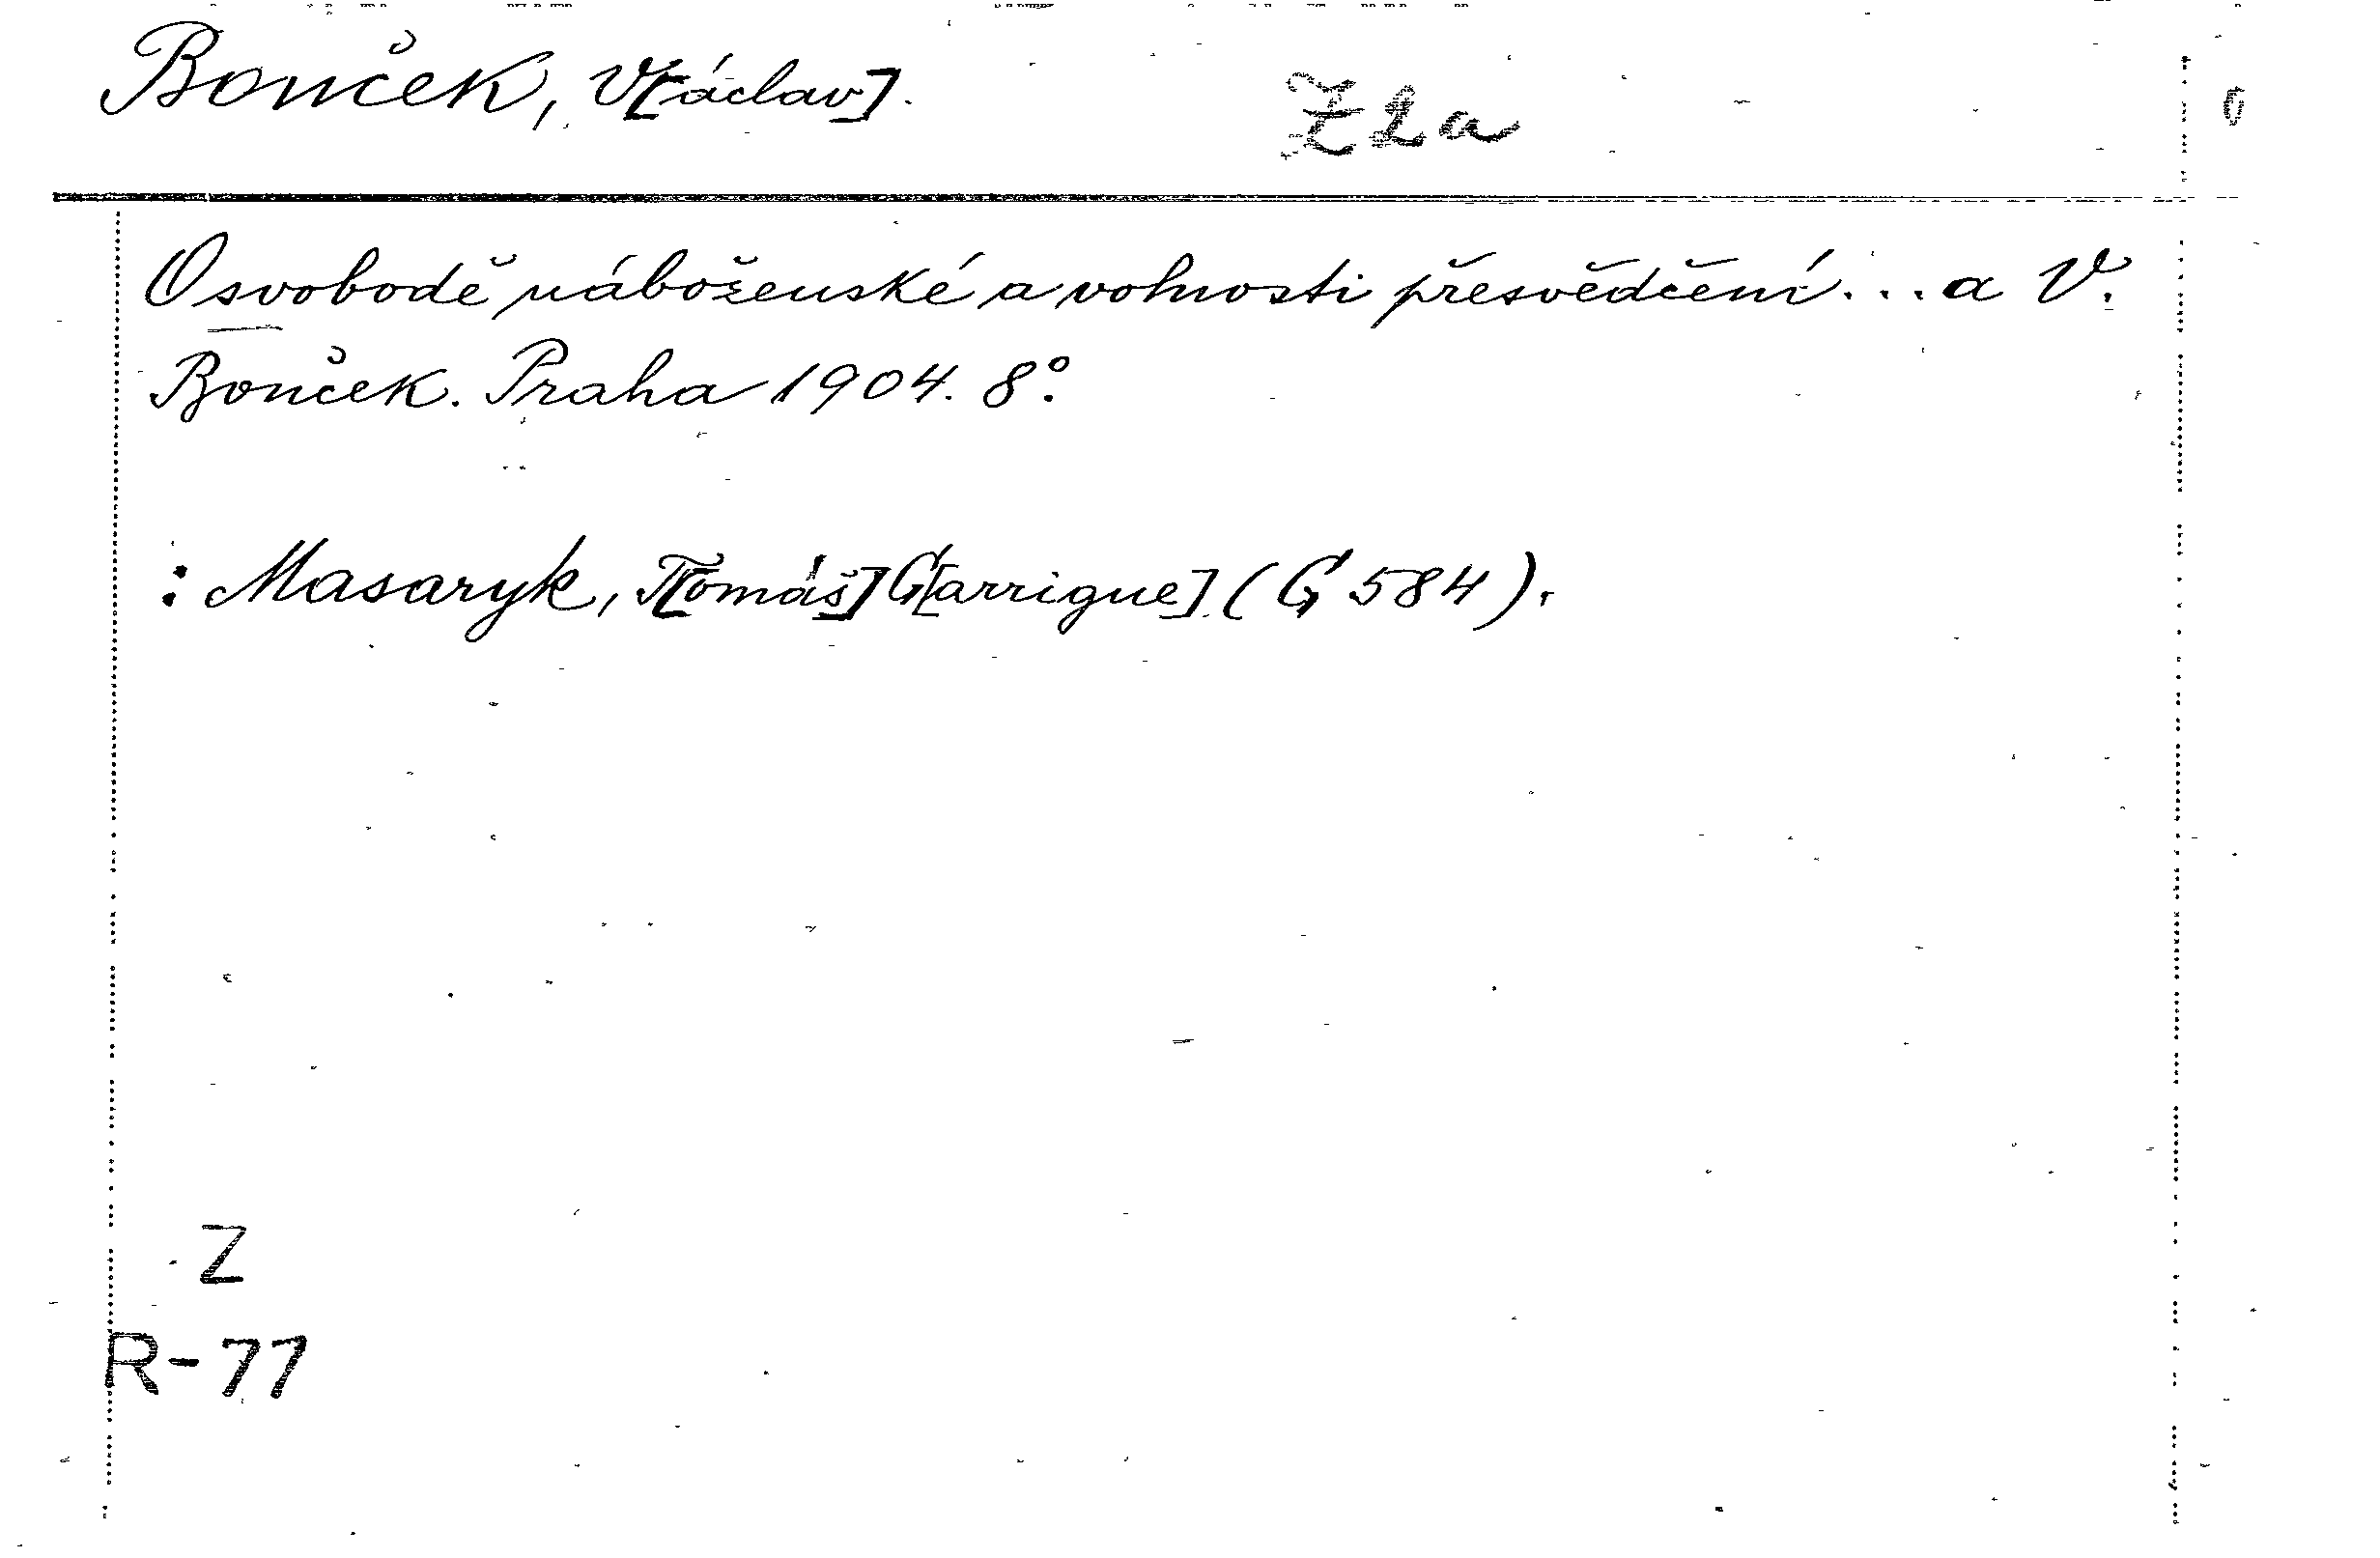 Bouček, V[áclav].
Z2a
O svobodě náboženské a volnosti přesvědčení... a V.
Bouček. Praha 1904. 8°.
: Masaryk, T[omáš] G[arrigue] (G 584).
Z
R-77